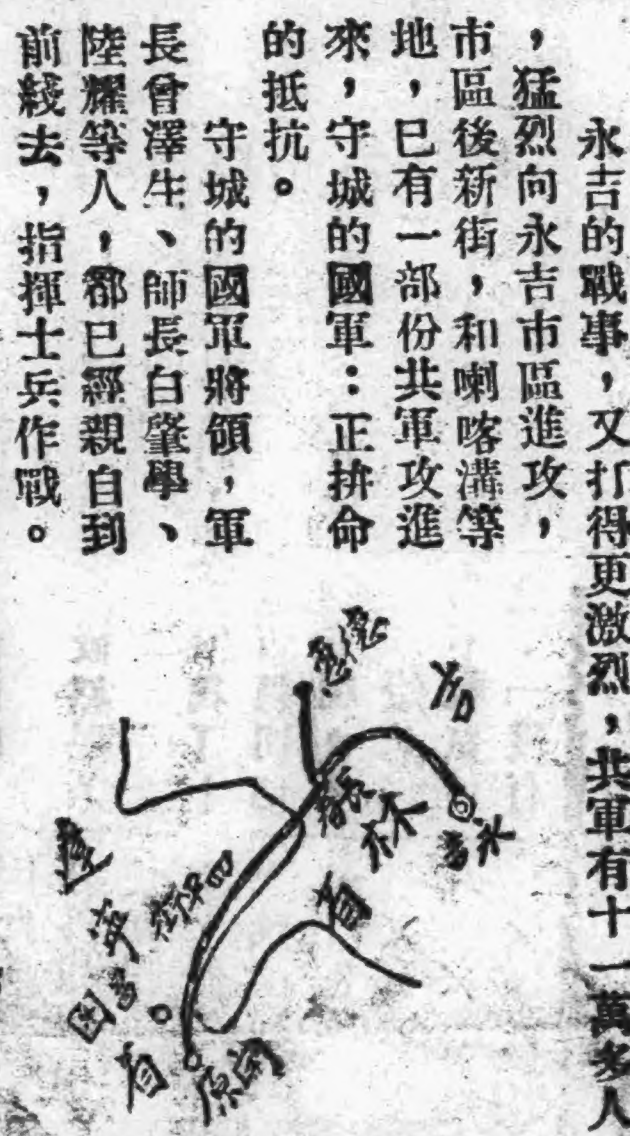 永吉的戰事，又打得更激烈，共軍有十一萬多人
，猛烈向永吉市區進攻，
市區後新街，和喇喀溝等
地，已有一部份共軍攻進
來，守城的國軍：正拚命
的抵抗。
守城的國軍將領，軍
長曾澤生、師長白肇學、
陸耀等人，都已經親自到
前綫去，指揮士兵作戰。
德惠
吉
長春
林
永吉
省
遼
四平街
寧
昌図
省
開原